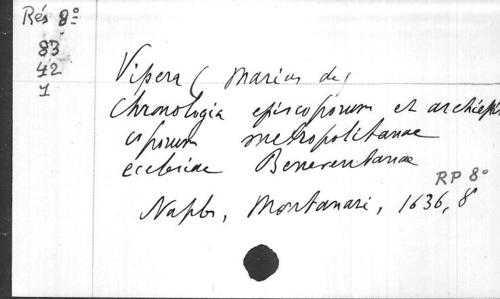 Rés 8º
83
42
1
Vipera (Marius de)
Chronologia episcoporum et archiepis
coporum metropolitanae
ecclesiae Beneventanae
RP 8º
Naples, Montanari, 1636, 8º